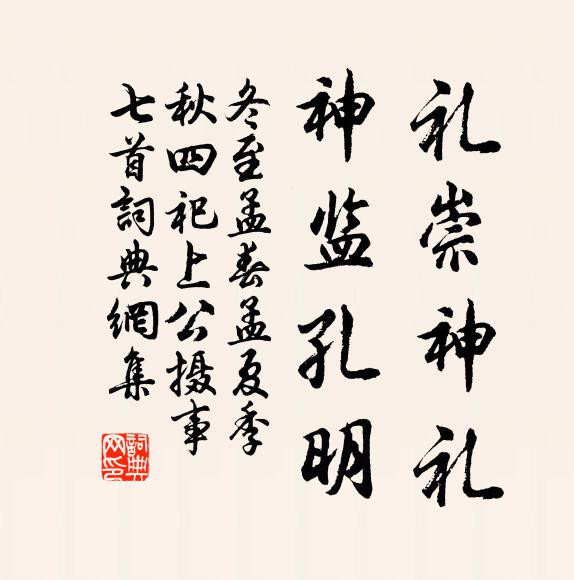 礼崇神礼
神监孔明
冬至孟春孟夏季
秋四祀上公摄事
七首詞典網集
詞典網印